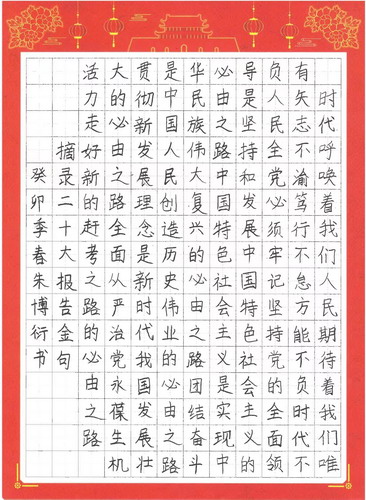 时代呼唤着我们人民期待着我们唯
有矢志不渝笃行不怠方能不负时代不
负人民全党必须牢记坚持党的全面领
导是坚持和发展中国特色社会主义的
必由之路中国特色社会主义是实现中
华民族伟大复兴的必由之路团结奋斗
是中国人民创造历史伟业的必由之路
贯彻新发展理念是新时代我国发展壮
大的必由之路全面从严治党永葆生机
活力走好新的赶考之路的必由之路
摘录二十大报告金句
癸卯季春朱博衍书